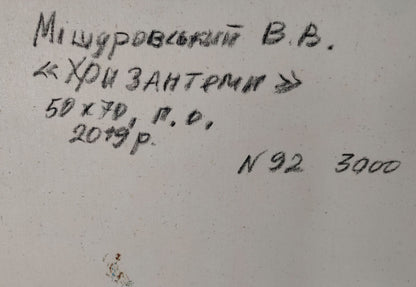 Мішуровський В.В.
«Хризантеми»
50х70, п.о,
2019р.
N92 3000